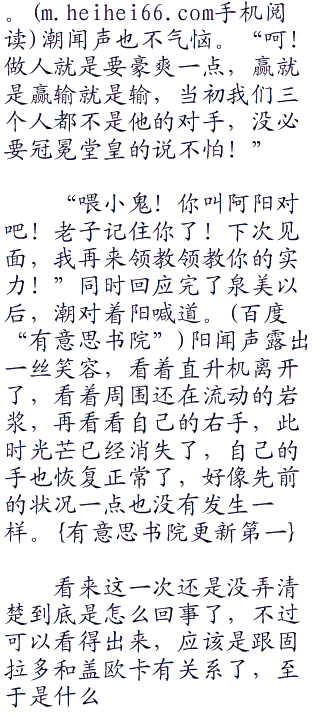 。(m.heihei66.com手机阅
读)潮闻声也不气恼。“呵!
做人就是要豪爽一点，赢就
是赢输就是输，当初我们三
个人都不是他的对手，没必
要冠冕堂皇的说不怕！”
“喂小鬼！你叫阿阳对
吧！老子记住你了！下次见
面，我再来领教领教你的实
力！”同时回应完了泉美以
后，潮对着阳喊道。(百度
“有意思书院”)阳闻声露出
一丝笑容，看着直升机离开
了，看着周围还在流动的岩
浆，再看看自己的右手，此
时光芒已经消失了，自己的
手也恢复正常了，好像先前
的状况一点也没有发生一
样。{有意思书院更新第一}
看来这一次还是没弄清
楚到底是怎么回事了，不过
可以看得出来，应该是跟固
拉多和盖欧卡有关系了，至
于是什么